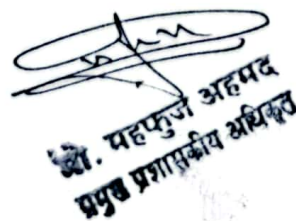 प्रो. महफुज अहमद
प्रमुख प्रशासकीय अधिकृत